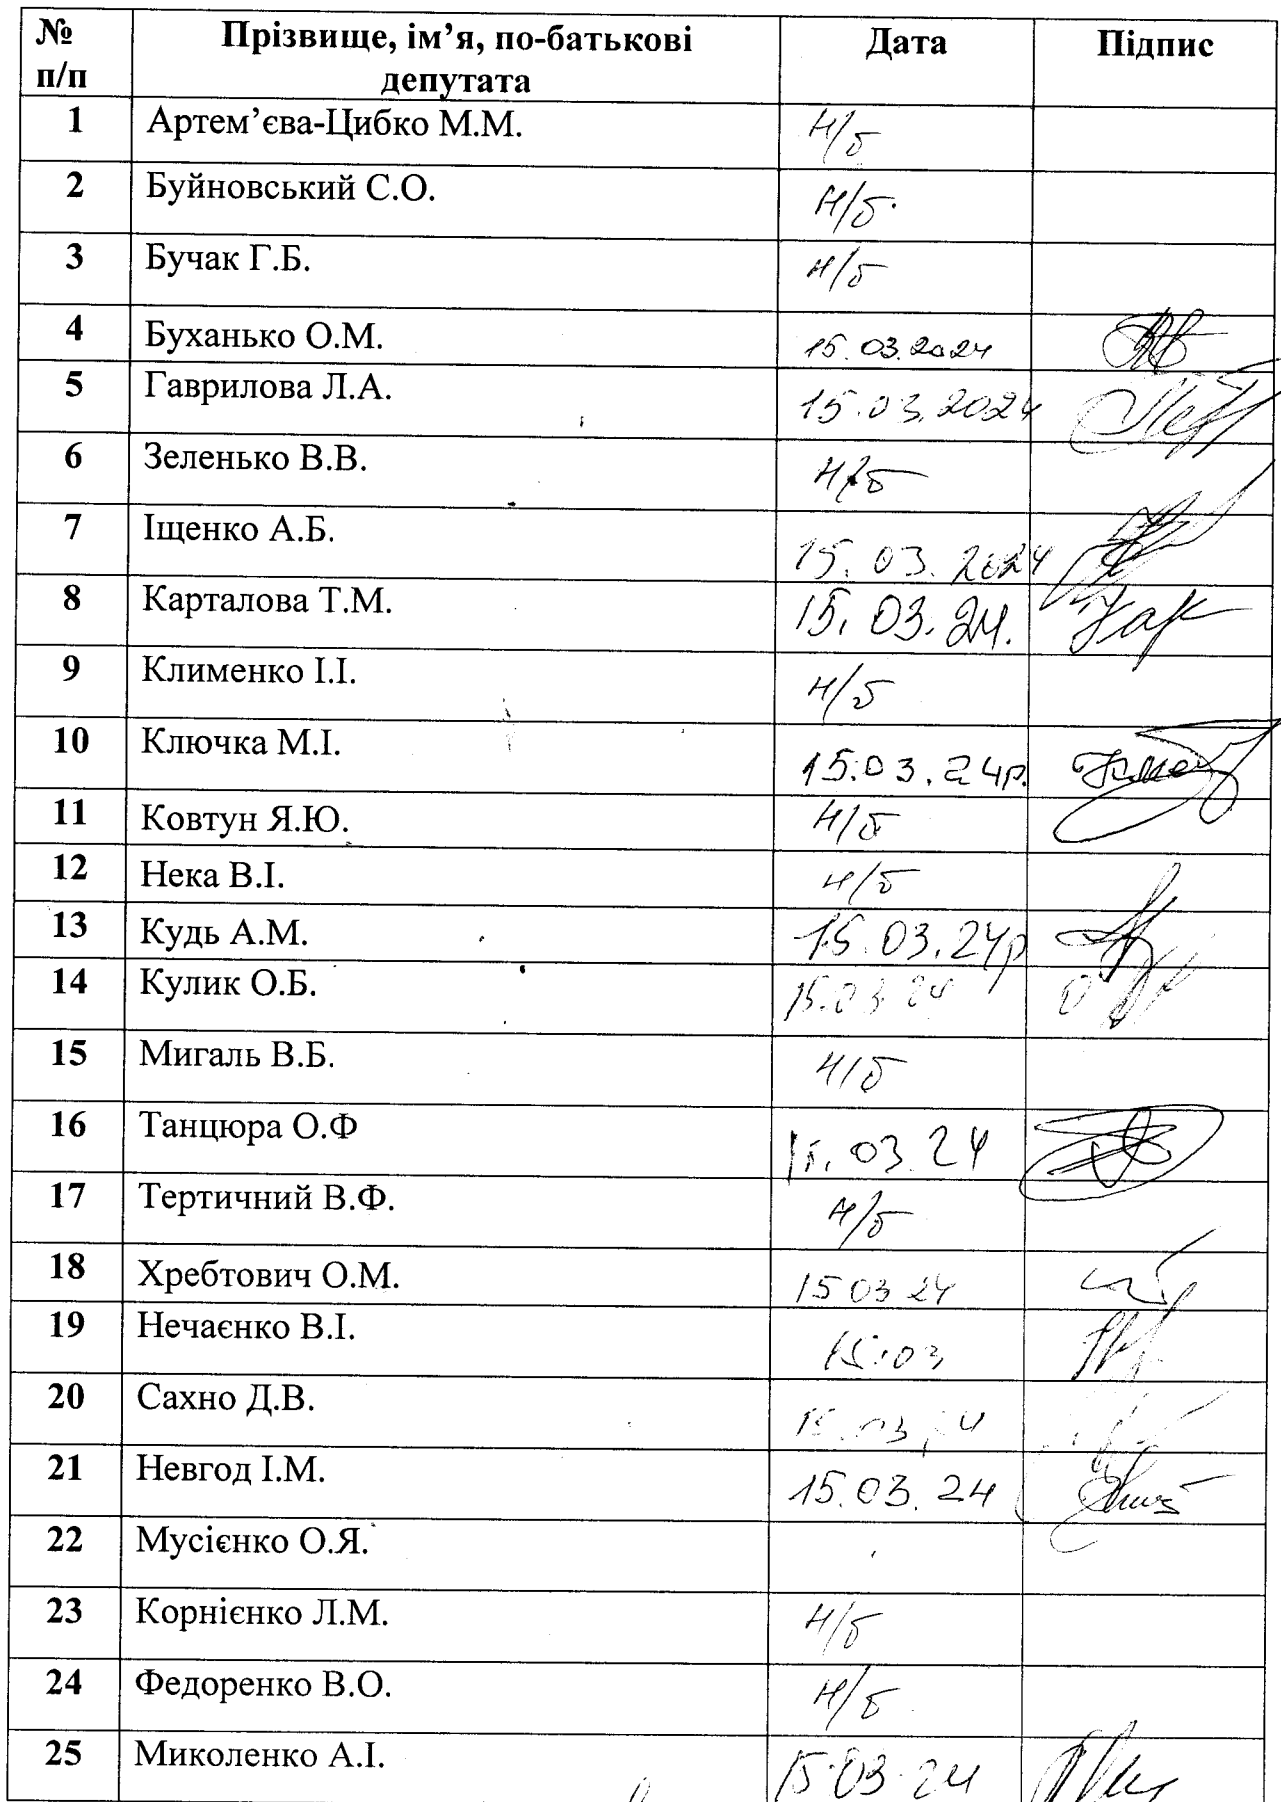 № Прізвище, ім’я, по-батькові Дата Підпис
п/п депутата
1 Артем’єва-Цибко М.М. н/б
2 Буйновський С.О. н/б.
3 Бучак Г.Б. н/б
4 Буханько О.М. 15.03.2024
5 Гаврилова Л.А. 15.03.2024
6 Зеленько В.В. н/б
7 Іщенко А.Б. 15.03.2024
8 Карталова Т.М. 15.03.24.
9 Клименко І.І. н/б
10 Ключка М.І. 15.03.24р.
11 Ковтун Я.Ю. н/б
12 Нека В.І. н/б
13 Кудь А.М. 15.03.24р
14 Кулик О.Б. 15.03.24
15 Мигаль В.Б. н/б
16 Танцюра О.Ф 15.03.24
17 Тертичний В.Ф. н/б
18 Хребтович О.М. 15 03 24
19 Нечаєнко В.І. 15.03
20 Сахно Д.В. 15.03.24
21 Невгод І.М. 15.03.24
22 Мусієнко О.Я.
23 Корнієнко Л.М. н/б
24 Федоренко В.О. н/б
25 Миколенко А.І. 15.03.24